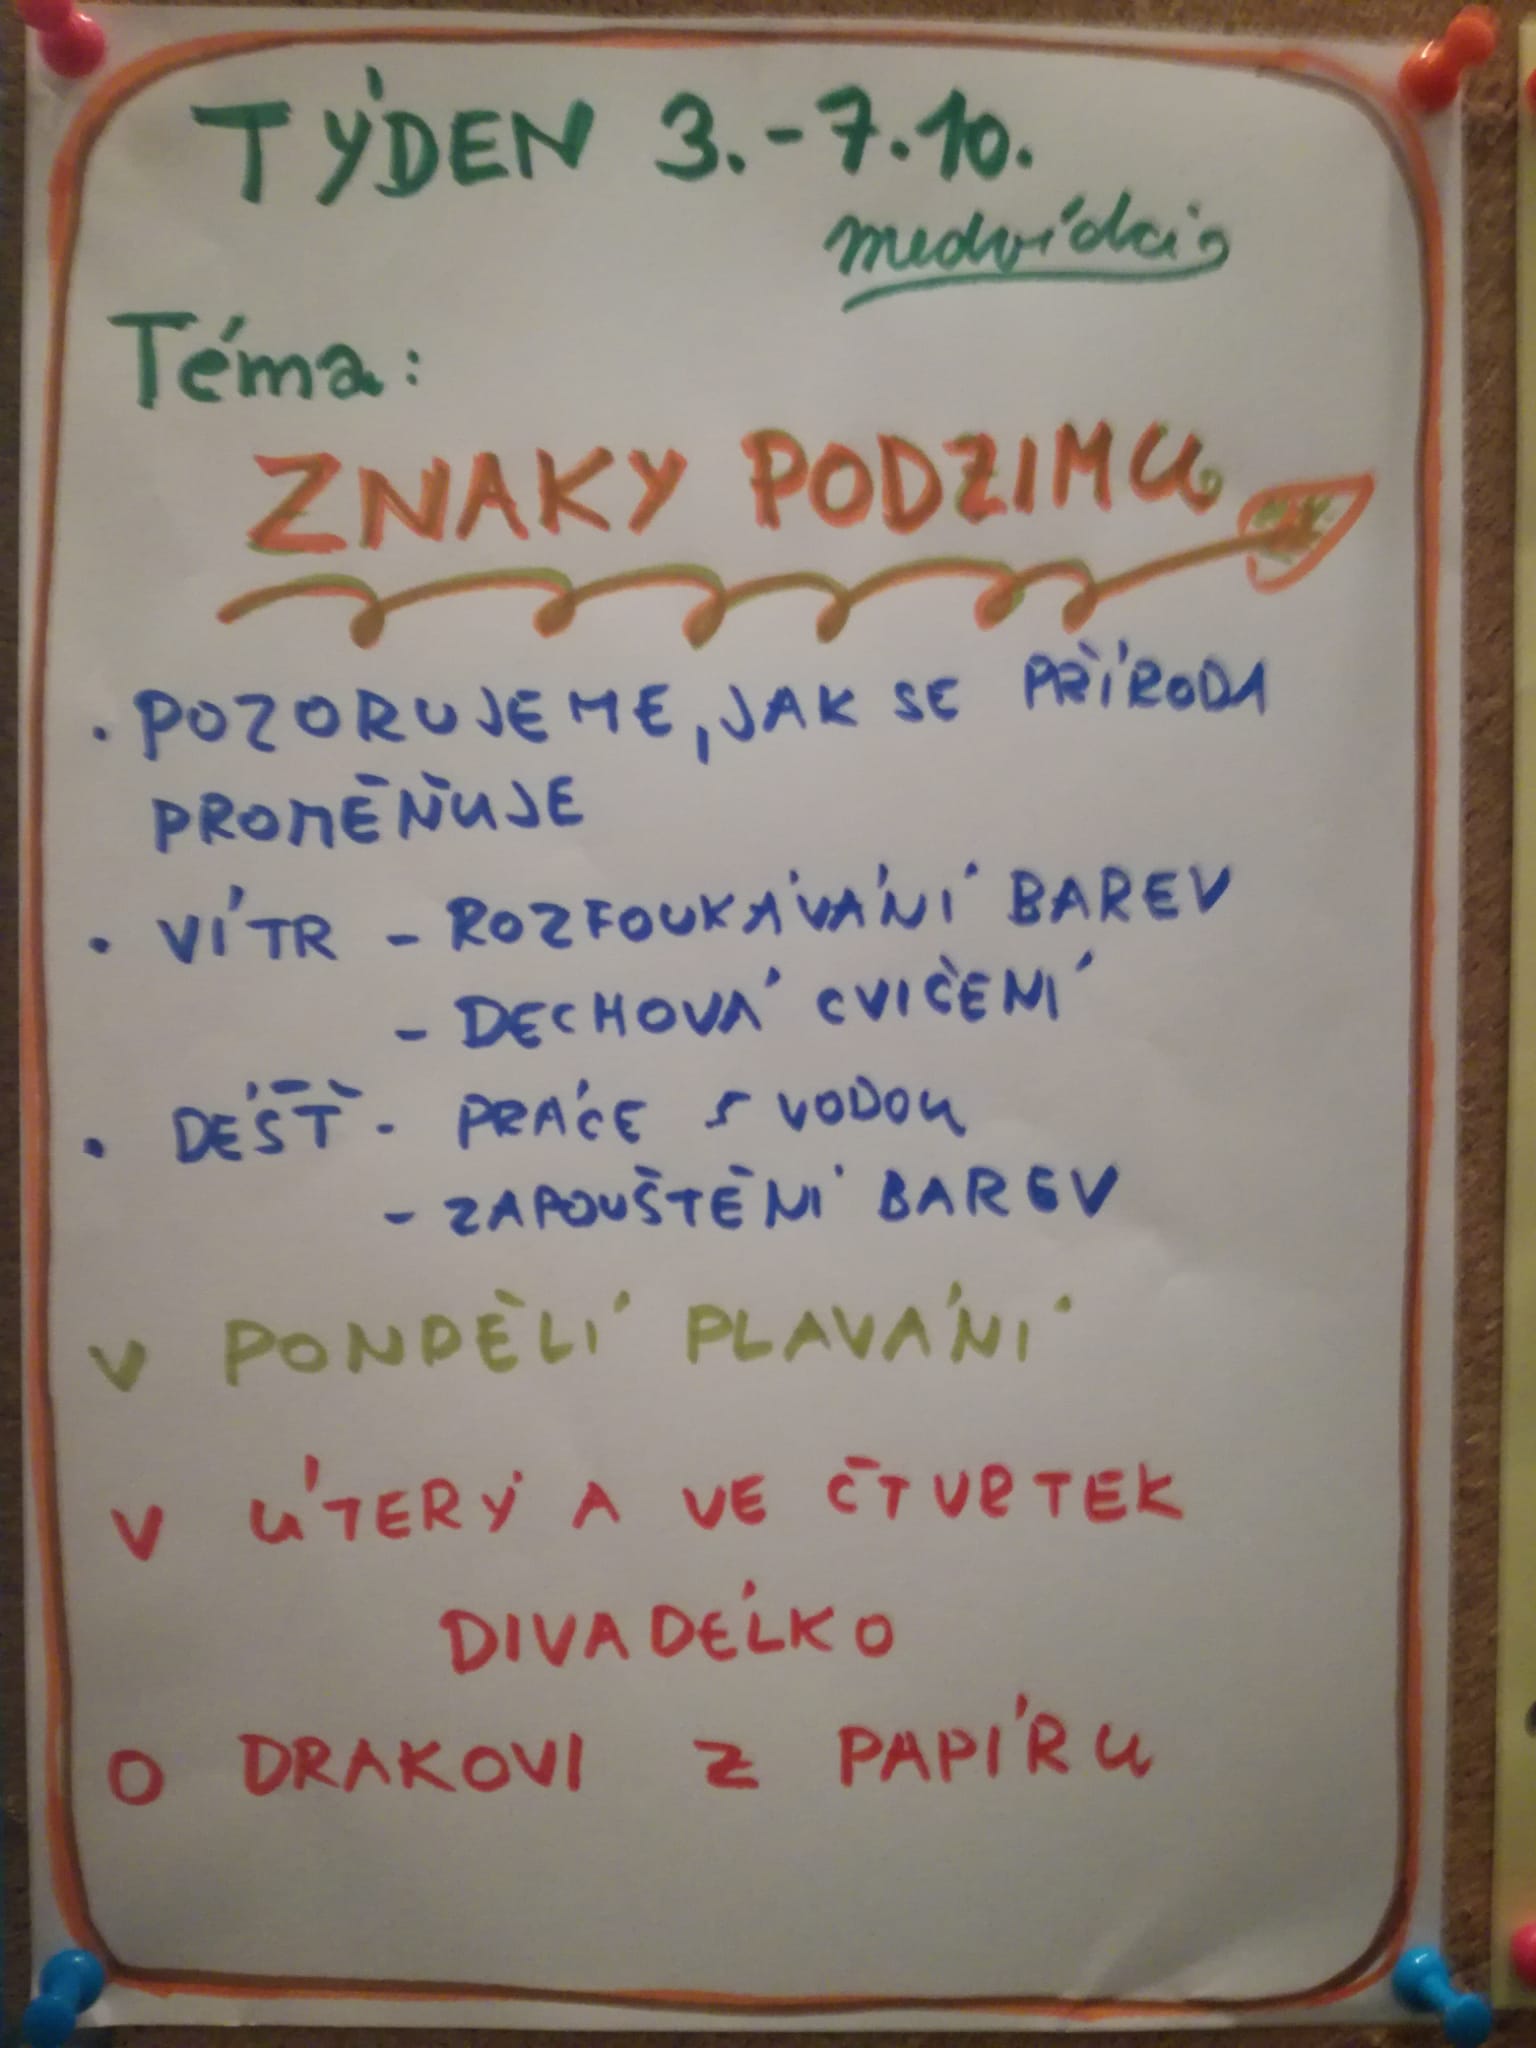 TÝDEN 3.-7.10.
medvídci
Téma:
ZNAKY PODZIMU
. POZORUJEME, JAK SE PŘÍRODA
PROMĚŇUJE
. VÍTR - ROZFOUKÁVÁNÍ BAREV
- DECHOVÁ CVIČENÍ
. DÉŠŤ - PRÁCE S VODOU
- ZAPOUŠTĚNÍ BAREV
V PONDĚLÍ PLAVÁNÍ
V ÚTERÝ A VE ČTVRTEK
DIVADÉLKO
O DRAKOVI Z PAPÍRU